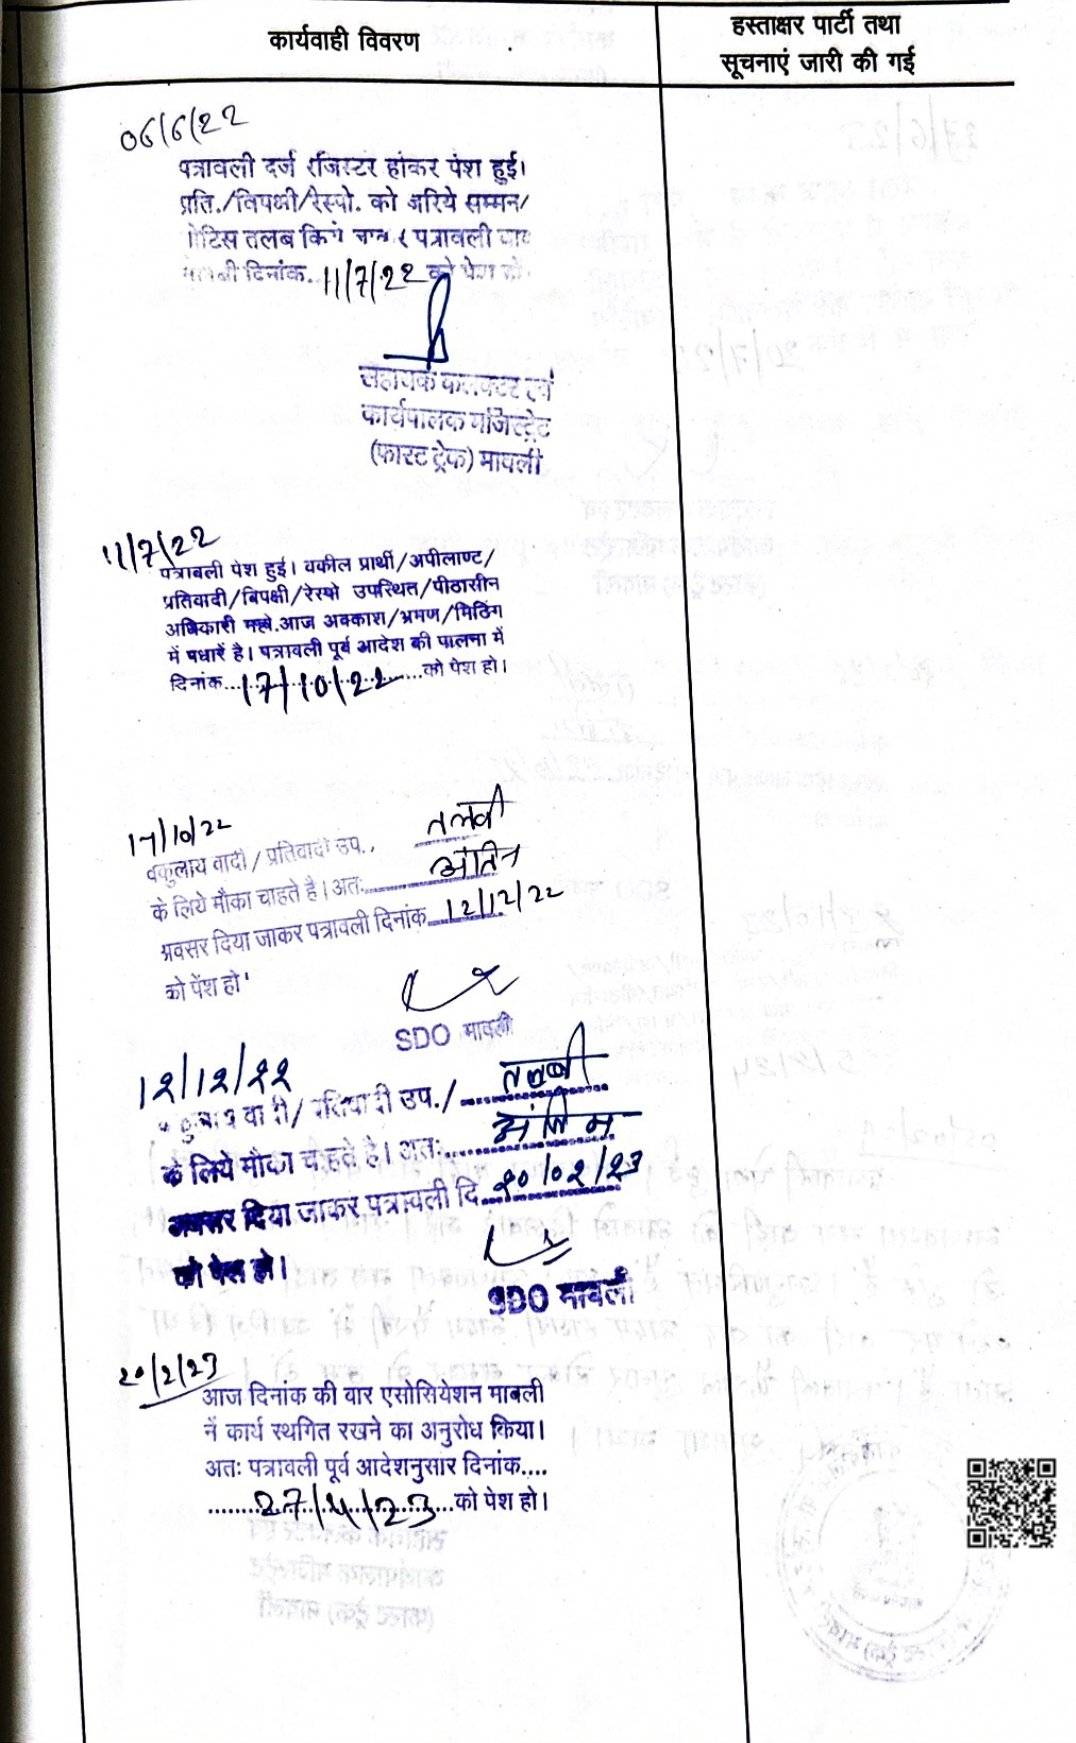 कार्यवाही विवरण
हस्ताक्षर पार्टी तथा
सूचनाएं जारी की गई
06/6/22
पत्रावली दर्ज रजिस्टर होकर पेश हुई।
प्रति./विपक्षी/रेस्पो. को जरिये सम्मन/
नोटिस तलब किये पत्रावली
दिनांक. 11/7/22 को पेश हो
सहायक कलक्टर एवं
कार्यपालक मजिस्ट्रेट
(फास्ट ट्रेक) मावली
11/7/22
पत्रावली पेश हुई। वकील प्रार्थी/अपीलाण्ट/
प्रतिवादी/विपक्षी/रेस्पो उपस्थित/पीठासीन
अधिकारी आज अवकाश/भ्रमण/मिटिंग
में पधारें है। पत्रावली पूर्व आदेश की पालना में
दिनांक...17/10/22...को पेश हो।
17/10/22
वकुलाय वादी / प्रतिवादी उप., तलबी
के लिये मौका चाहते है। अतः
अवसर दिया जाकर पत्रावली दिनांक 12/12/22
को पेंश हो
SDO मावली
12/12/22
वादी/ प्रतिवादी उप./ तलबी
के लिये मौका चाहते है। अतः अंतिम
अवसर दिया जाकर पत्रावली दि 20/02/23
को पेस हो।
SDO मावली
20/2/23
आज दिनांक की वार एसोसियेशन मावली
नें कार्य स्थगित रखने का अनुरोध किया।
अतः पत्रावली पूर्व आदेशनुसार दिनांक....
........27/4/23...को पेश हो।